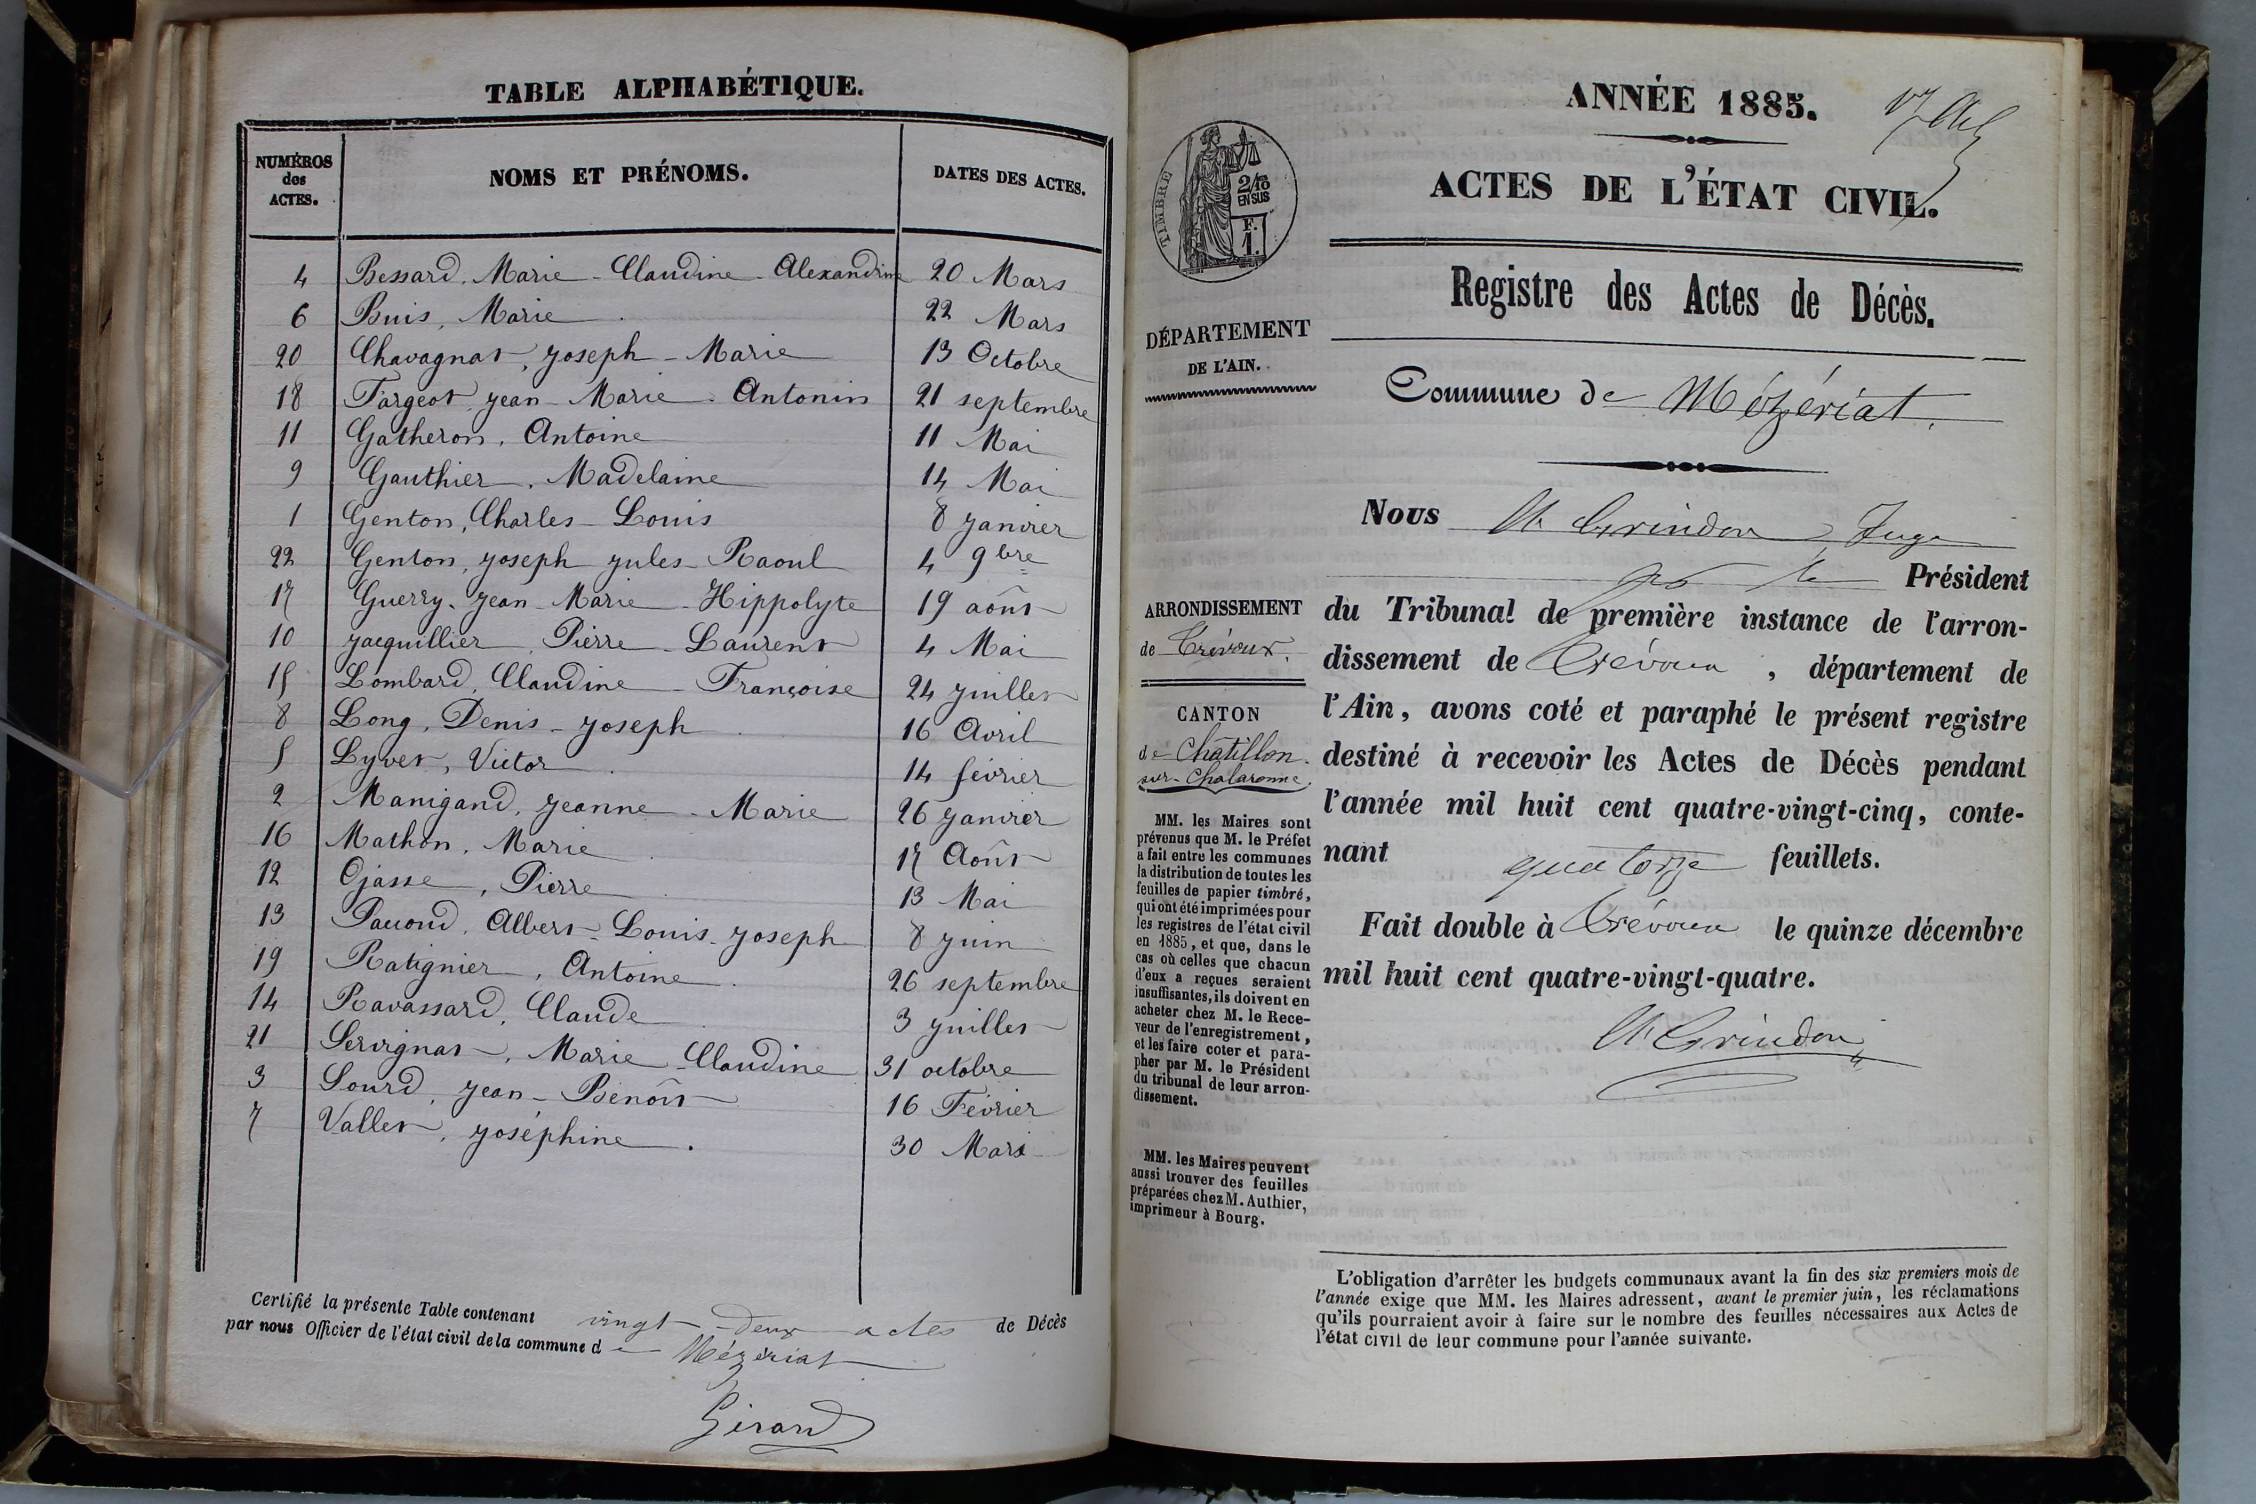 TABLE ALPHABÉTIQUE.
NUMÉROS des ACTES. NOMS ET PRÉNOMS. DATES DES ACTES.
4 Bessard, Marie-Claudine-Alexandrine 20 Mars
6 Buis, Marie 22 Mars
20 Chavagnat, Joseph-Marie 13 Octobre
18 Fargeot Jean-Marie-Antonin 21 septembre
11 Gatheron, Antoine 11 Mai
9 Gauthier, Madelaine 14 Mai
1 Genton, Charles-Louis 8 Janvier
22 Genton, Joseph Jules-Raoul 4 9bre
17 Guerry, Jean-Marie-Hippolyte 19 août
10 Jacquillier, Pierre-Laurent 4 Mai
15 Lombard, Claudine-Françoise 24 Juillet
8 Long, Denis-Joseph 16 Avril
5 Lyvet, Victor 14 février
2 Manigand, Jeanne-Marie 26 Janvier
16 Mathon, Marie 17 Août
12 Ojasse, Pierre 13 Mai
13 Albert-Louis-Joseph 8 Juin
19 Ratignier, Antoine 26 septembre
14 Ravassard, Claude 3 Juillet
21 Servignat, Marie-Claudine 31 octobre
3 Sourd, Jean-Benoît 16 Février
7 Vallet, Joséphine. 30 Mars
Certifié la présente Table contenant vingt-deux actes de Décès
par nous Officier de l'état civil de la commune de Mézériat
Girard
ANNÉE 1885.
ACTES DE L'ÉTAT CIVIL.
TIMBRE
2/10
EN SUS
F.
1.
Registre des Actes de Décès.
DÉPARTEMENT
DE L'AIN.
Commune de Mézériat.
Nous Grindon, Juge
Président
ARRONDISSEMENT
de Trévoux.
du Tribunal de première instance de l'arron-
dissement de Trévoux, département de
l'Ain, avons coté et paraphé le présent registre
destiné à recevoir les Actes de Décès pendant
l'année mil huit cent quatre-vingt-cinq, conte-
nant quatorze feuillets.
Fait double à Trévoux le quinze décembre
mil huit cent quatre-vingt-quatre.
Grindon
CANTON
de Châtillon-
sur-Chalaronne.
MM. les Maires sont
prévenus que M. le Préfet
a fait entre les communes
la distribution de toutes les
feuilles de papier timbré,
qui ont été imprimées pour
les registres de l'état civil
en 1885, et que, dans le
cas où celles que chacun
d'eux a reçues seraient
insuffisantes, ils doivent en
acheter chez M. le Rece-
veur de l'enregistrement,
et les faire coter et para-
pher par M. le Président
du tribunal de leur arron-
dissement.
MM. les Maires peuvent
aussi trouver des feuilles
préparées chez M. Authier,
imprimeur à Bourg.
L'obligation d'arrêter les budgets communaux avant la fin des six premiers mois de
l'année exige que MM. les Maires adressent, avant le premier juin, les réclamations
qu'ils pourraient avoir à faire sur le nombre des feuilles nécessaires aux Actes de
l'état civil de leur commune pour l'année suivante.